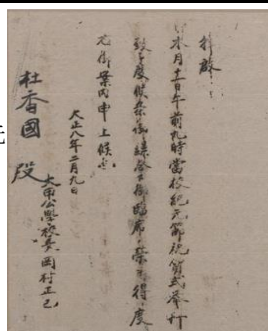 拝啓
本月十一日午前九時當校紀元節祝賀式挙行
致シ度候条御繰合セ御臨席ノ栄ヲ得度
右御案内申上候也
大正八年二月九日
大甲公學校長 岡村正己
杜香國 殿